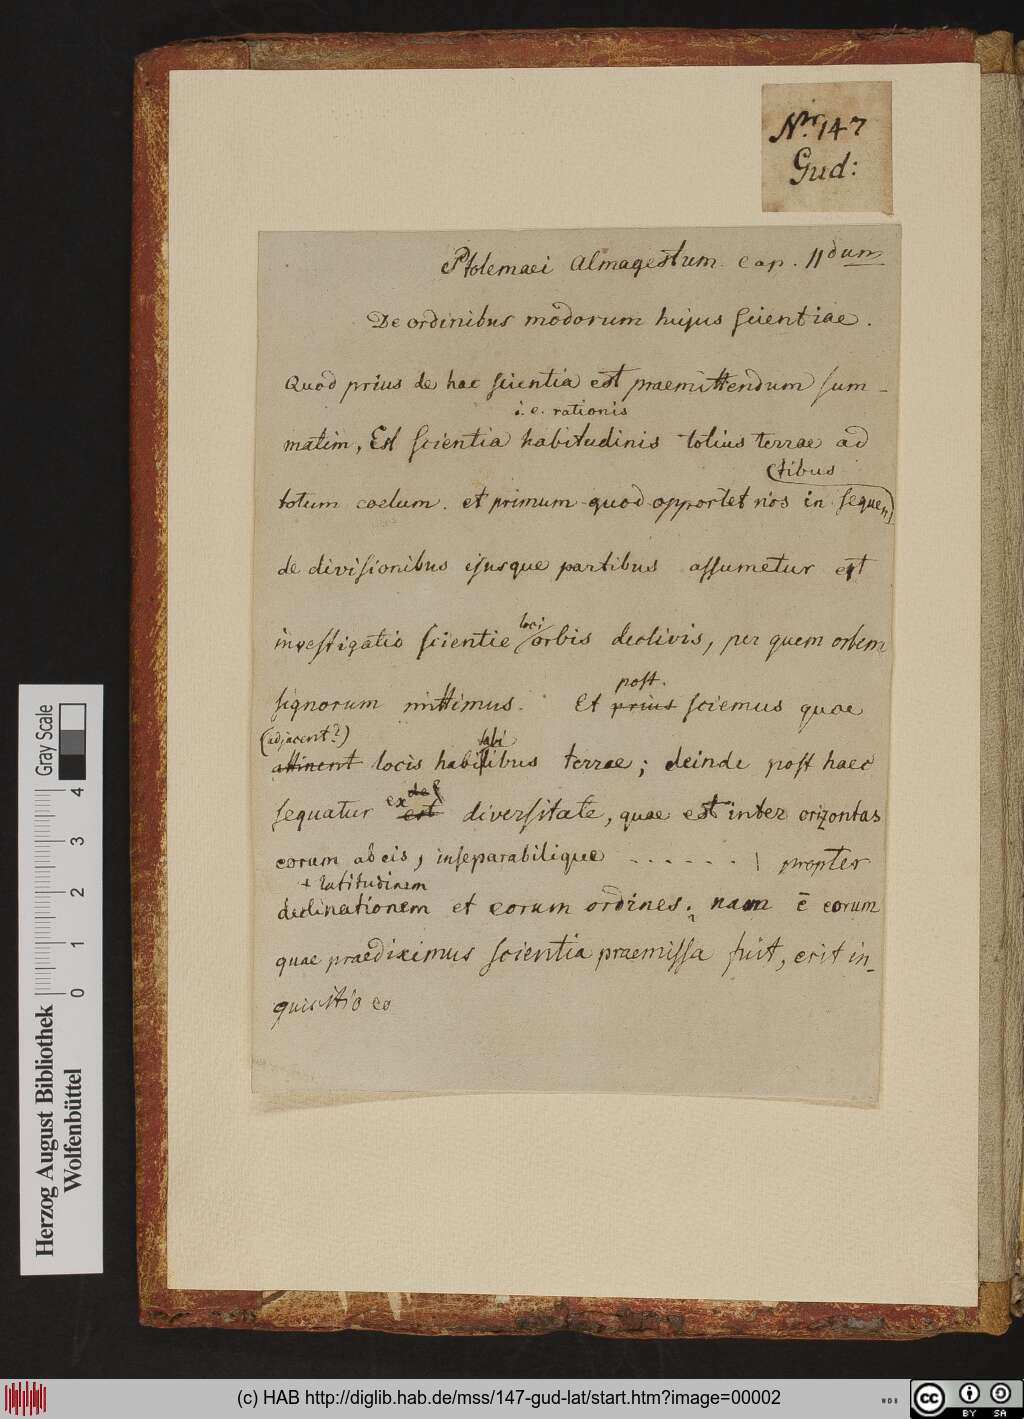 Nr. 147
Gud:
Ptolemaei Almagestum. Cap. IIdum
De ordinibus modorum hujus scientiae.
Quod prius de hac scientia est praemittendum sum-
i.e. rationis
matim, Est scientia habitudinis totius terrae ad
(tibus
totum coelum. et primum quod opportet nos in sequen)
de divisionibus ejusque partibus assumetur est
loci
investigatio scientie orbis declivis, per quem orbem
post.
signorum mittimus. Et prius sciemus quae
(adjacent?)
attinent locis habitibus terrae; deinde post haec
de
sequatur ex est diversitate, quae est inter orizontas
eorum ab eis, inseparabilique . . . . . . . propter
+ latitudinem
declinationem et eorum ordines; nam ē eorum
quae praediximus scientia praemissa fuit, erit in-
quisitio eo
Herzog August Bibliothek
Wolfenbüttel
Gray Scale
0 1 2 3 4
(c) HAB http://diglib.hab.de/mss/147-gud-lat/start.htm?image=00002
WDB
cc
BY SA